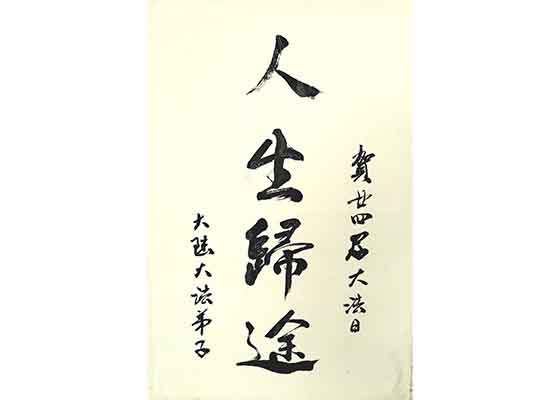 賀廿四屆大法日
人生歸途
大陸大法弟子